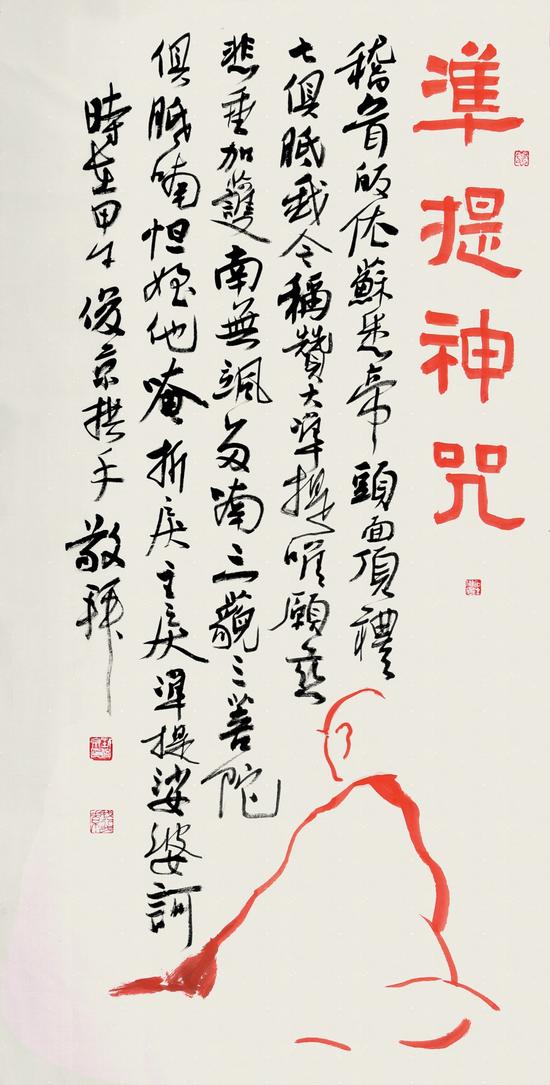 準提神咒
稽首皈依蘇悉帝頭面頂禮
七俱胝我今稱贊大準提唯願慈
悲垂加護南無颯多喃三藐三菩陀
俱胝喃怛姪他唵折戾主戾準提娑婆訶
時在甲午俊京拱手敬拜